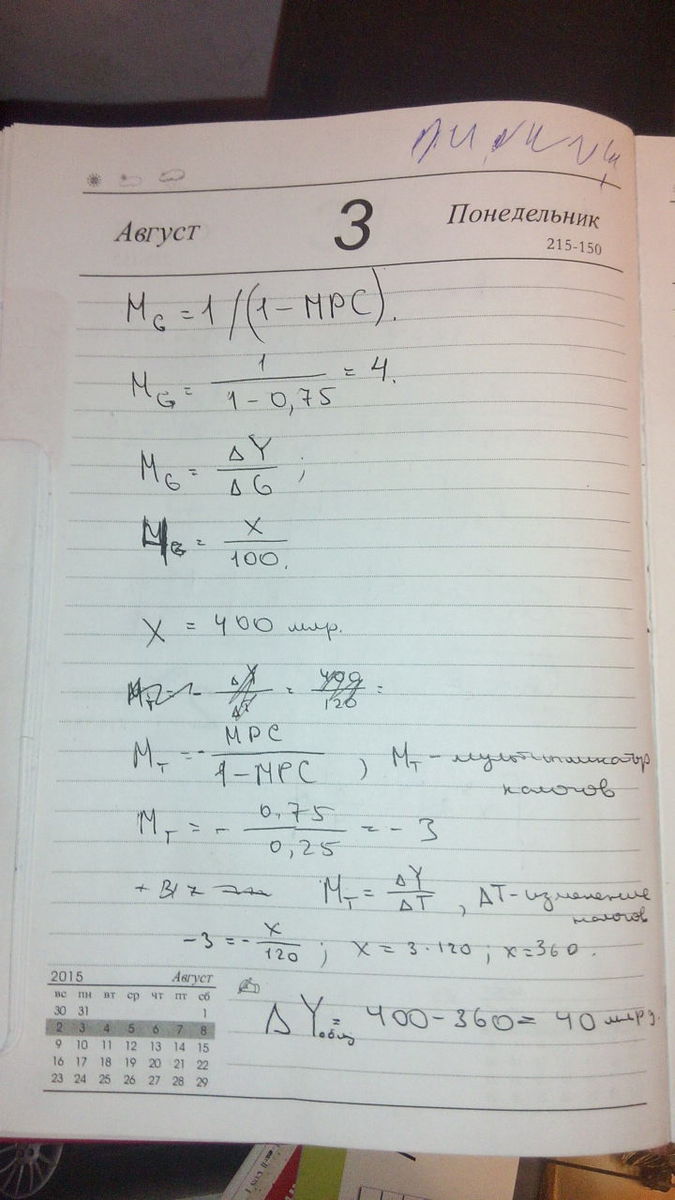 Август 3 Понедельник
215-150
M_G = 1 / (1 - MPC).
M_G = 1 / (1 - 0,75) = 4.
M_G = ΔY / ΔG ;
M_G = X / 100.
X = 400 млр.
M_T = - MPC / (1 - MPC) , M_T - мультипликатор
налогов
M_T = - 0,75 / 0,25 = - 3
M_T = ΔY / ΔT , ΔT - изменение
налогов
-3 = - X / 120 ; X = 3 · 120 ; X = 360.
ΔY общ = 400 - 360 = 40 млрд.
2015 Август
вс пн вт ср чт пт сб
30 31 1
2 3 4 5 6 7 8
9 10 11 12 13 14 15
16 17 18 19 20 21 22
23 24 25 26 27 28 29